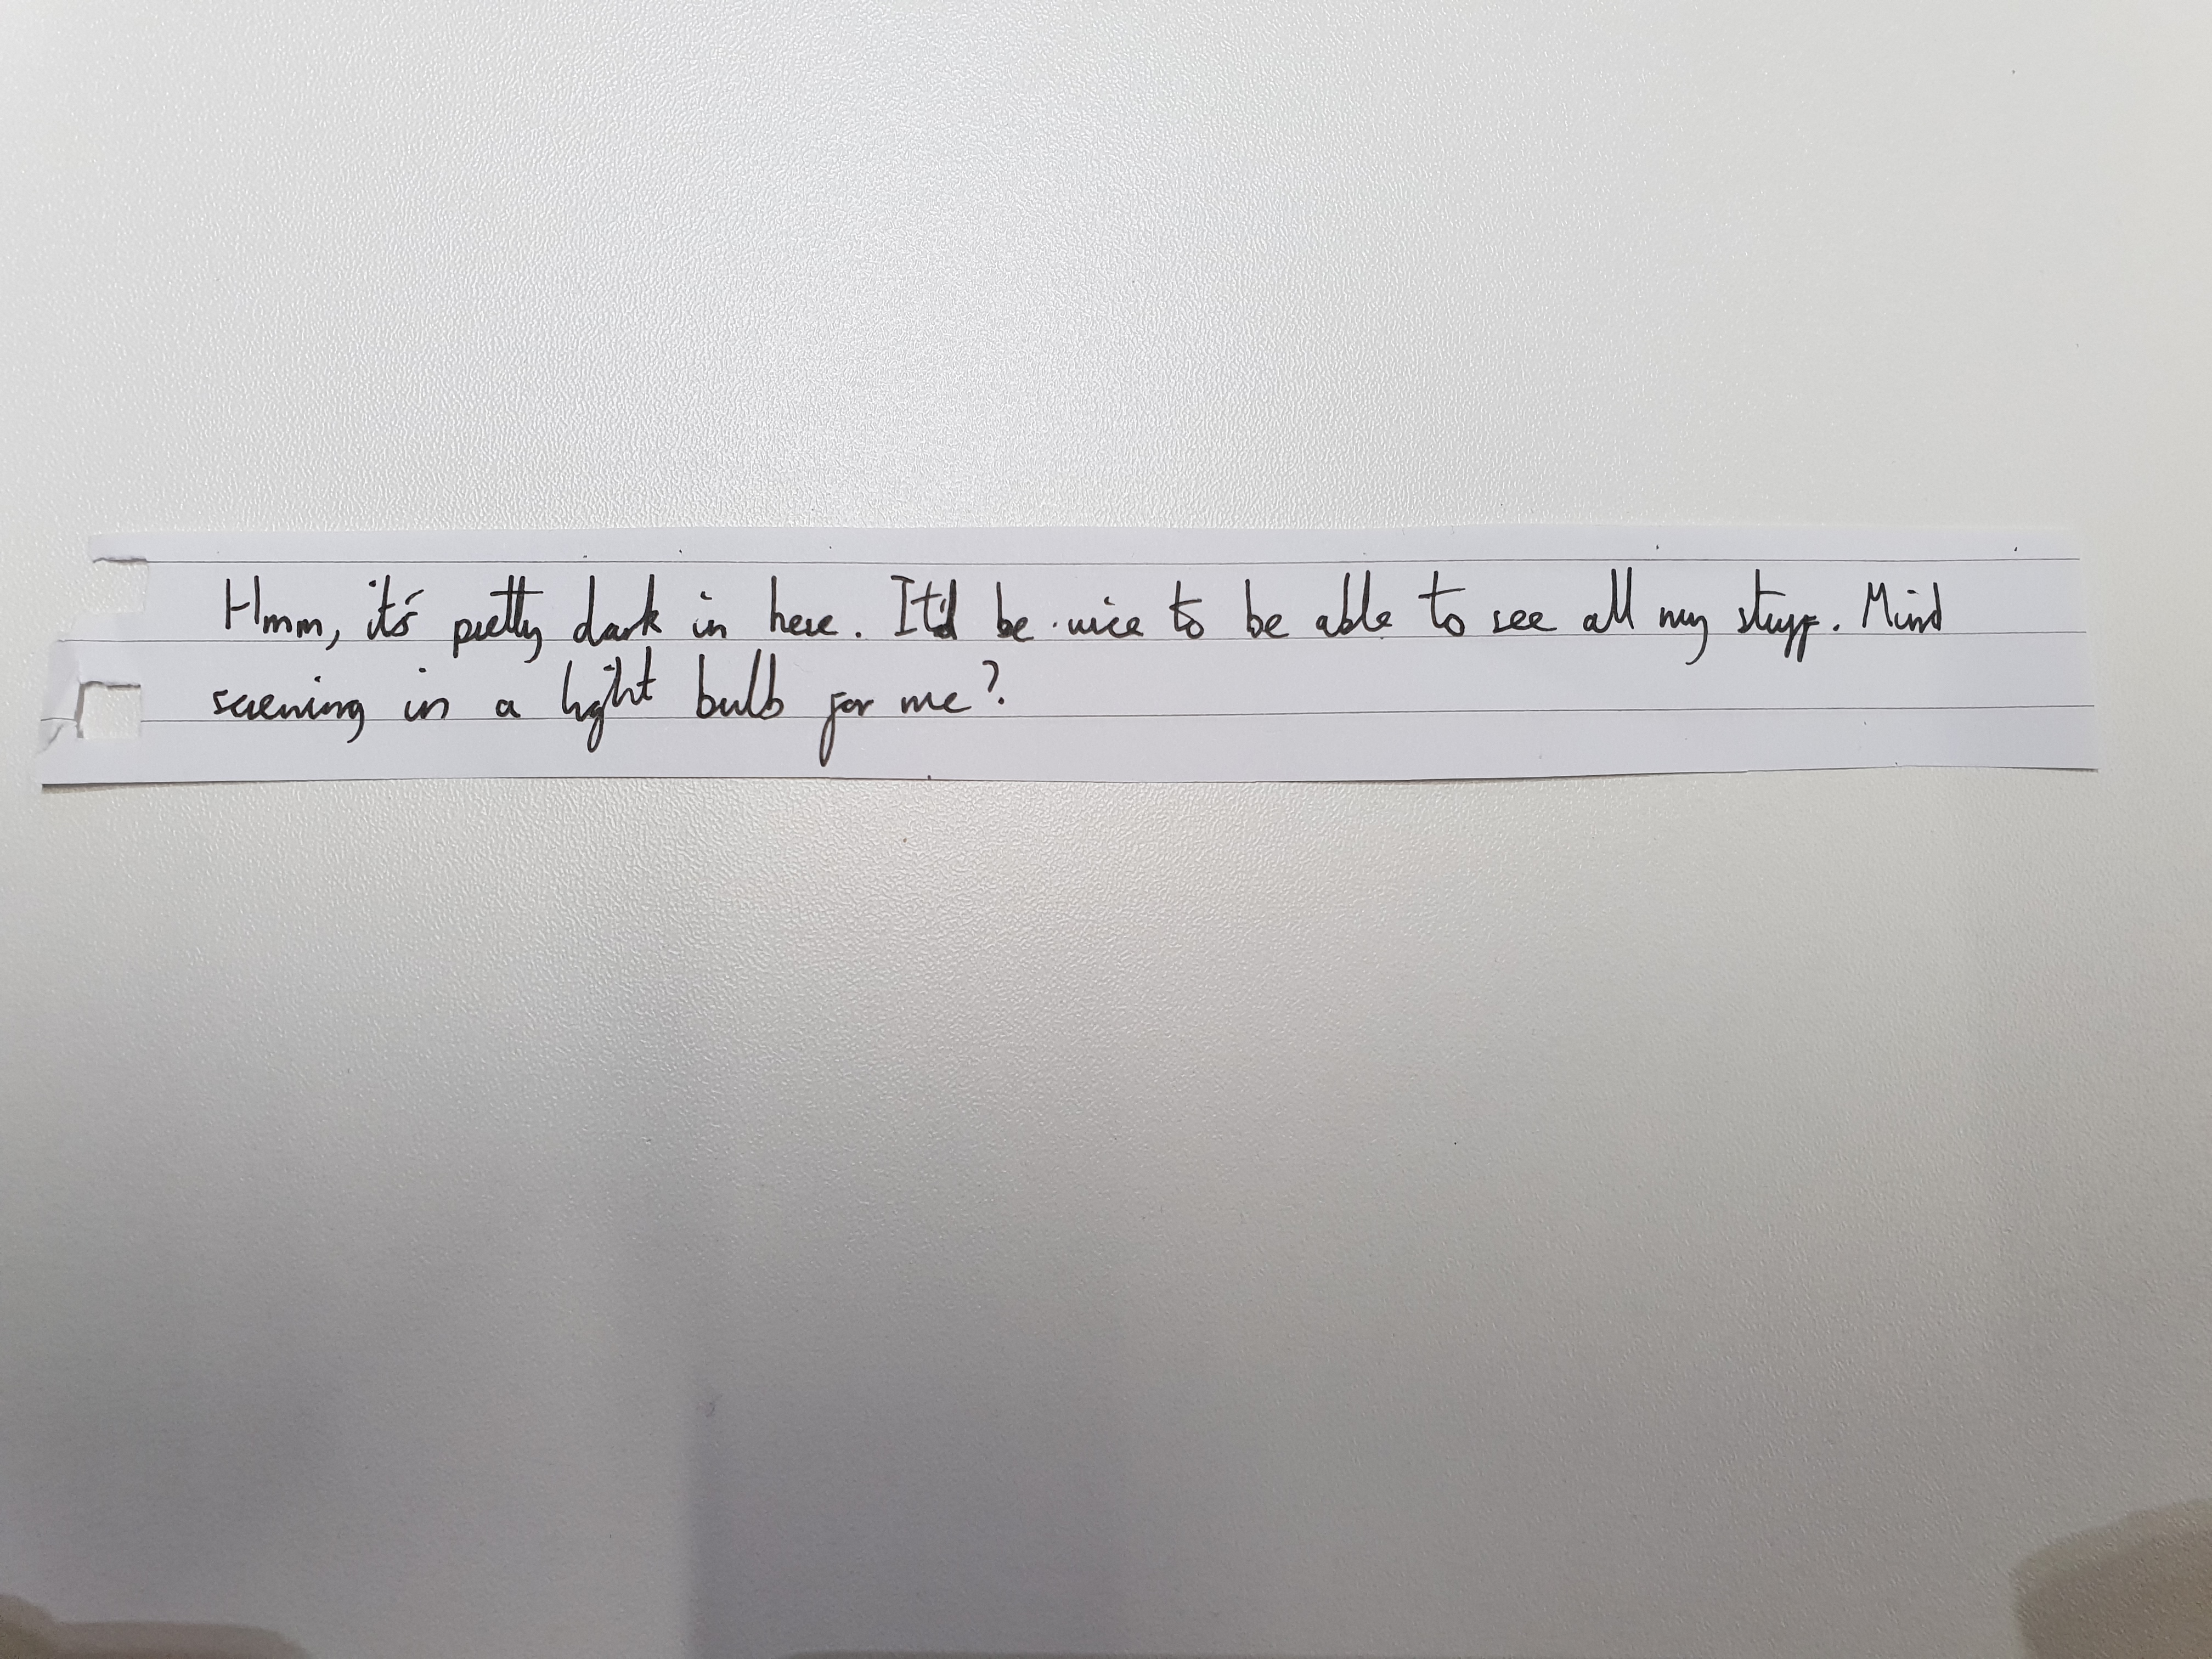 Hmm, it's pretty dark in here. It'd be nice to be able to see all my stuff. Mind
screwing in a light bulb for me?